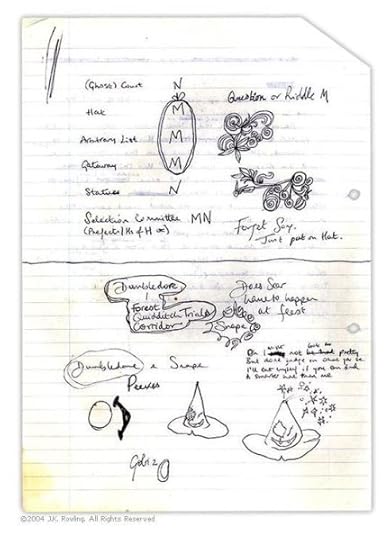 (Ghosts) Court N
Hat M
Question or Riddle M
Arbitrary List M
Gateway M
Statues N
Selection Committee MN
(Prefects/Hs of H etc)
Forget Say.
Just put on Hat.
Dumbledore
Forest
Quidditch Trials
Corridor
Snape
Does Sor
have to happen
at feast
Dumbledore x Snape
Peeves
Oh I may not be pretty
But dont judge on what you see
I'll eat myself if you can find
A smarter hat than me
©2004 J.K. Rowling. All Rights Reserved